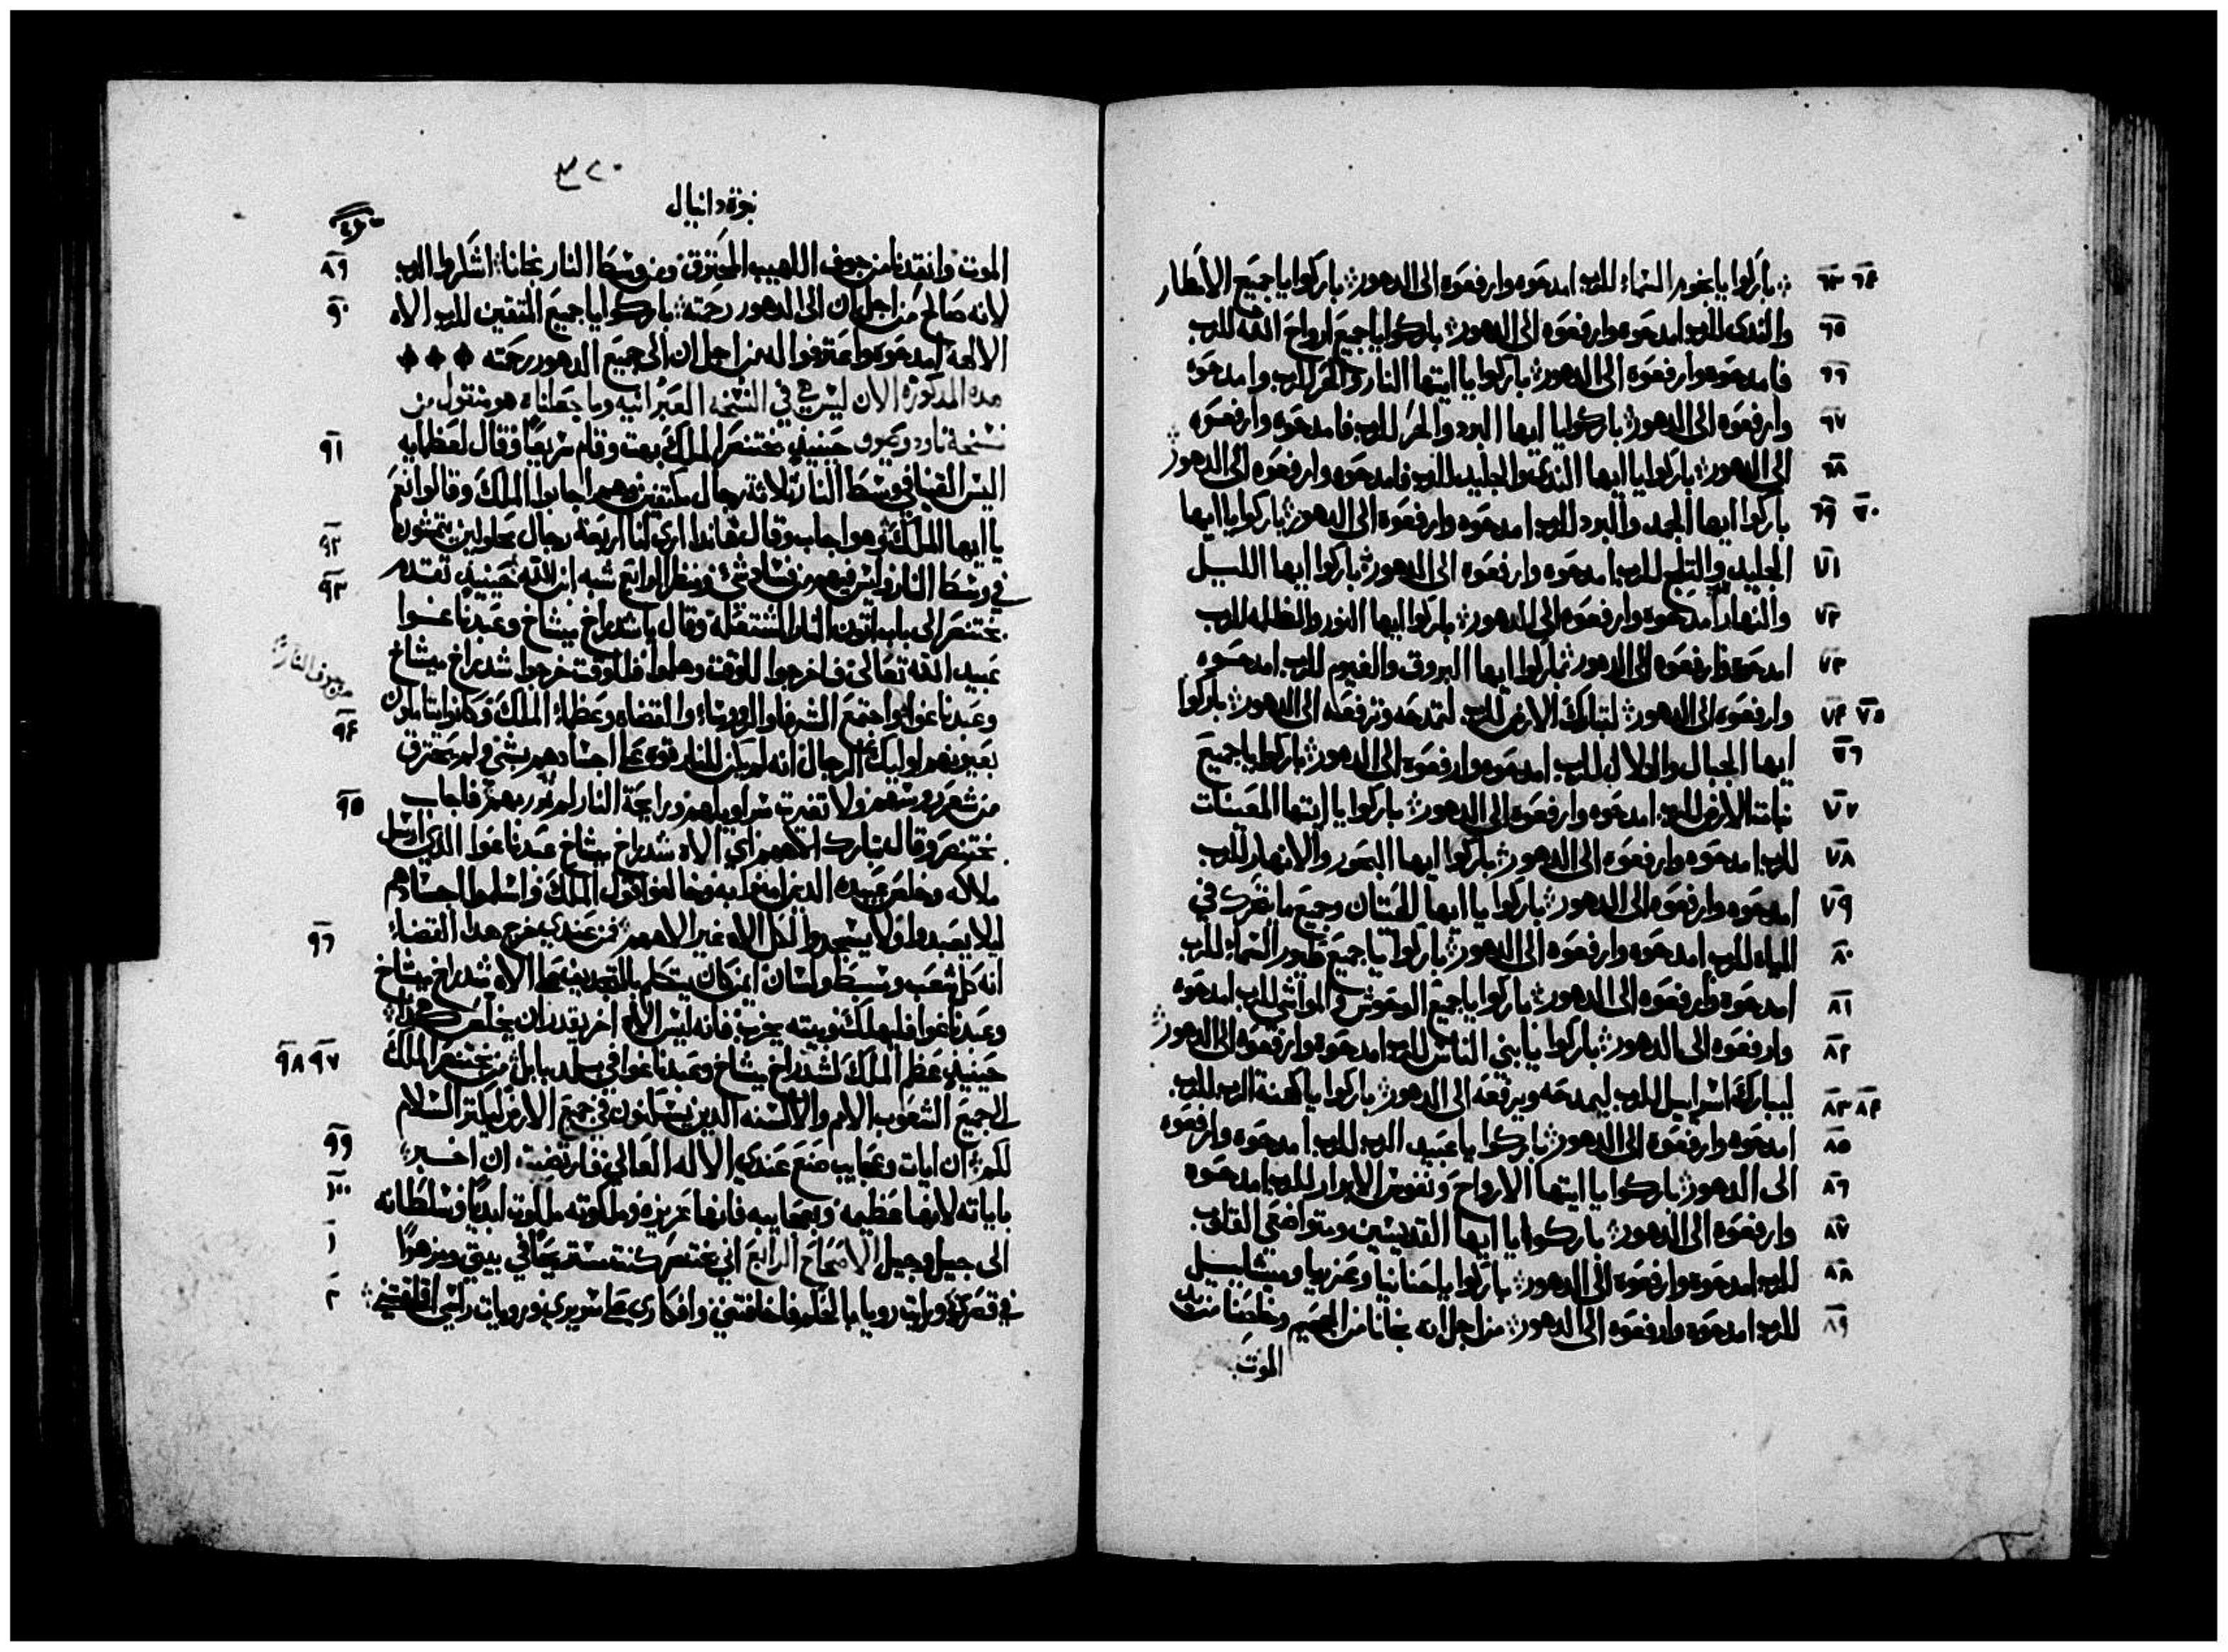 ٦٣ ٦٤ باركوا يا نجوم السماء للرب امدحوه وارفعوه الى الدهور باركوا يا جميع الامطار
٦٥ والندى للرب امدحوه وارفعوه الى الدهور باركوا يا جميع ارواح الله للرب
٦٦ فامدحوه وارفعوه الى الدهور باركوا يا ايتها النار والحر للرب وامدحوه
٦٧ وارفعوه الى الدهور باركوا يا ايها البرد والحر للرب فامدحوه وارفعوه
٦٨ الى الدهور باركوا يا ايها الندى والجليد للرب فامدحوه وارفعوه الى الدهور
٦٩ ٧٠ باركوا ايها الجمد والبرد للرب امدحوه وارفعوه الى الدهور باركوا يا ايها
٧١ الجليد والثلج للرب امدحوه وارفعوه الى الدهور باركوا ايها الليل
٧٢ والنهار امدحوه وارفعوه الى الدهور باركوا ايها النور والظلمه للرب
٧٣ امدحوه وارفعوه الى الدهور باركوا ايها البروق والغيوم للرب امدحوه
٧٤ ٧٥ وارفعوه الى الدهور لتبارك الارض للرب لتمدحه وترفعه الى الدهور باركوا
٧٦ ايها الجبال والتلال للرب امدحوه وارفعوه الى الدهور باركوا يا جميع
٧٧ نبات الارض للرب امدحوه وارفعوه الى الدهور باركوا يا ايتها المعينات
٧٨ للرب امدحوه وارفعوه الى الدهور باركوا ايها البحور والانهار للرب
٧٩ امدحوه وارفعوه الى الدهور باركوا يا ايها الحيتان وجميع ما يتحرك في
٨٠ المياه للرب امدحوه وارفعوه الى الدهور باركوا يا جميع طيور السماء للرب
٨١ امدحوه وارفعوه الى الدهور باركوا يا جميع الوحوش والمواشي للرب امدحوه
٨٢ وارفعوه الى الدهور باركوا يا بني الناس للرب امدحوه وارفعوه الى الدهور
٨٣ ٨٤ ليبارك اسراييل للرب ليمدحه ويرفعه الى الدهور باركوا يا كهنة الرب للرب
٨٥ امدحوه وارفعوه الى الدهور باركوا يا عبيد الرب للرب امدحوه وارفعوه
٨٦ الى الدهور باركوا يا ايتها الارواح ونفوس الابرار للرب امدحوه
٨٧ وارفعوه الى الدهور باركوا يا ايها القديسين ومتواضعي القلوب
٨٨ للرب امدحوه وارفعوه الى الدهور باركوا يا حنانيا وعزريا وميشاييل
٨٩ للرب امدحوه وارفعوه الى الدهور من اجل انه نجانا من الجحيم وخلصنا من يد
الموت
٣٢٠
نبوة دانيال
٨٩ الموت وانقدنا من جوف اللهيب المحترق ومن وسط النار نجانا اشكروا الرب
٩٠ لانه صالح من اجل ان الى الدهور رحمته باركوا يا جميع المتقين للرب الاه
الالهة امدحوه واعترفوا له من اجل ان الى جميع الدهور رحمته
هده المدكوره الان ليس هي في النسخه العبرانيه وما جعلناه هو منقول من
٩١ نسخة تاودوصيون حينيذ بختنصر الملك بهت وقام سريعا وقال لعظمايه
اليس القينا في وسط النار ثلاثة رجال مكتفين وهم اجابوا الملك وقالوا نعم
٩٢ يا ايها الملك وهو اجاب وقال هاندا اري انا اربعة رجال محلولين يتمشون
٩٣ في وسط النار وليس فيهم من فساد شي ومنظر الرابع شبه ابن الله حينيذ تقدم
بختنصر الى باب اتون النار المشتعله وقال يا شدراخ ميشاخ وعبدناغوا
عبيد الله تعالى فاخرجوا للوقت وهلموا فللوقت خرجوا شدراخ ميشاخ
من جوف النار
٩٤ وعبدناغوا واجتمع الشرفا والروساء والقضاه وعظماء الملك وكانوا يتاملون
بعيونهم اوليك الرجال انه لم يكن للنار قوه على اجسادهم بشي ولم يحترق
٩٥ من شعر روسهم ولا تغيرت سراويلهم ورايحة النار لم تور بهم فاجاب
بختنصر وقال تبارك الاههم اي الاه شدراخ ميشاخ عبدناغوا الذي ارسل
ملاكه وخلص عبيده الدين امنوا به وخالفوا قول الملك واسلموا اجسادهم
٩٦ ليلا يعبدوا ولا يسجدوا لكل الاه غير الاههم فمن عندي خرج هدا القضاء
انه كل شعب وسبط ولسان اين كان يتكلم بالتجديف على الاه شدراخ ميشاخ
وعبدناغوا فليهلك وبيته يخرب فانه ليس الاه اخر يقدر ان يخلص هكدا
٩٧ ٩٨ حينيذ عظم الملك لشدراخ ميشاخ وعبدناغوا في بلد بابل من بختنصر الملك
الى جميع الشعوب الامم والالسنه الدين يسكنون في جميع الارض ليكتر السلام
٩٩ لكم ان ايات وعجايب صنع عندي الاله العالي فارتضيت ان اخبر
١٠٠ باياته لانها عظيمه وبعجايبه فانها عزيزه وملكوته ملكوت ابديا وسلطانه
١ الى جيل وجيل الاصحاح الرابع اني بختنصر كنت مستريحا في بيتي ومزهرا
٢ في قصري ورايت رويا بالحلم فاخافتني وافكاري على سريري ورويات راسي اقلقتني